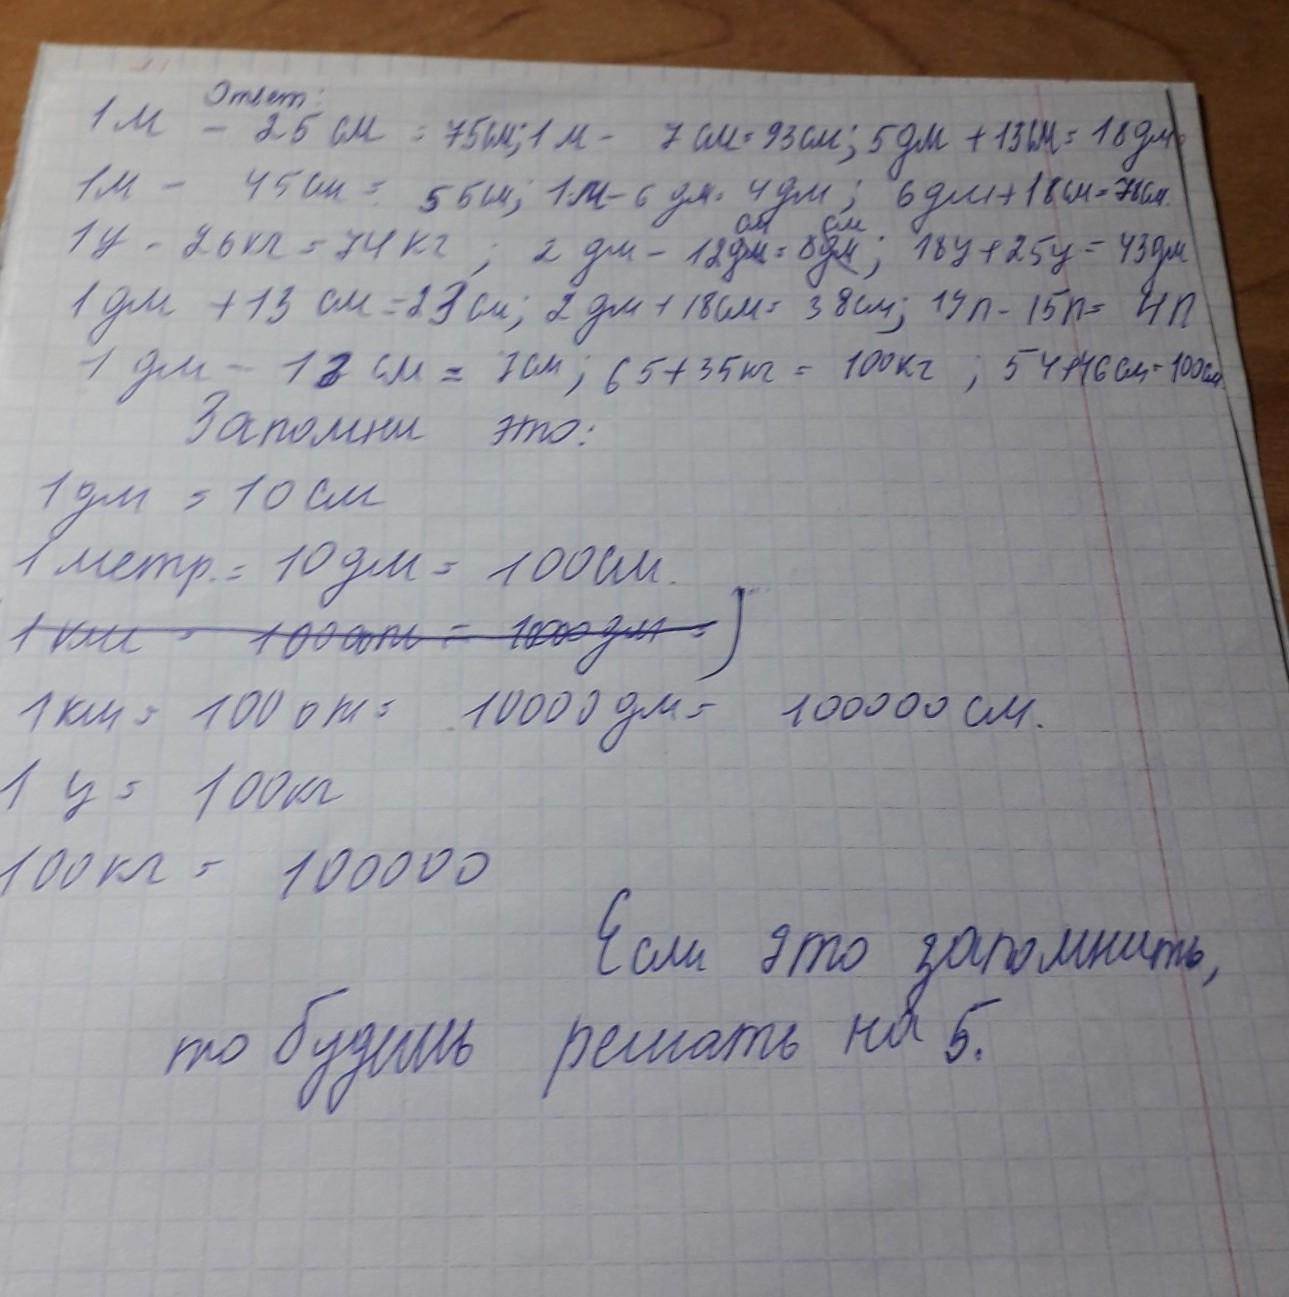 Ответ:
1м - 25см = 75см; 1м - 7см = 93см; 5дм + 13см = 18дм
1м - 45см = 55см; 1м - 6дм = 4дм; 6дм + 18см = 78см.
1ц - 26кг = 74кг; 2дм - 12см = 8см; 18ц + 25ц = 43дм
1дм + 13см = 23см; 2дм + 18см = 38см; 19л - 15л = 4л
1дм - 13см = 7см; 65 + 35кг = 100кг; 54 + 46см = 100см
Запомни это:
1дм = 10см
1метр. = 10дм = 100см.
1км = 1000дм =
1км = 100 от = 10000дм = 100000см.
1ц = 100кг
100кг = 100000
Если это запомнить,
то будешь решать на 5.